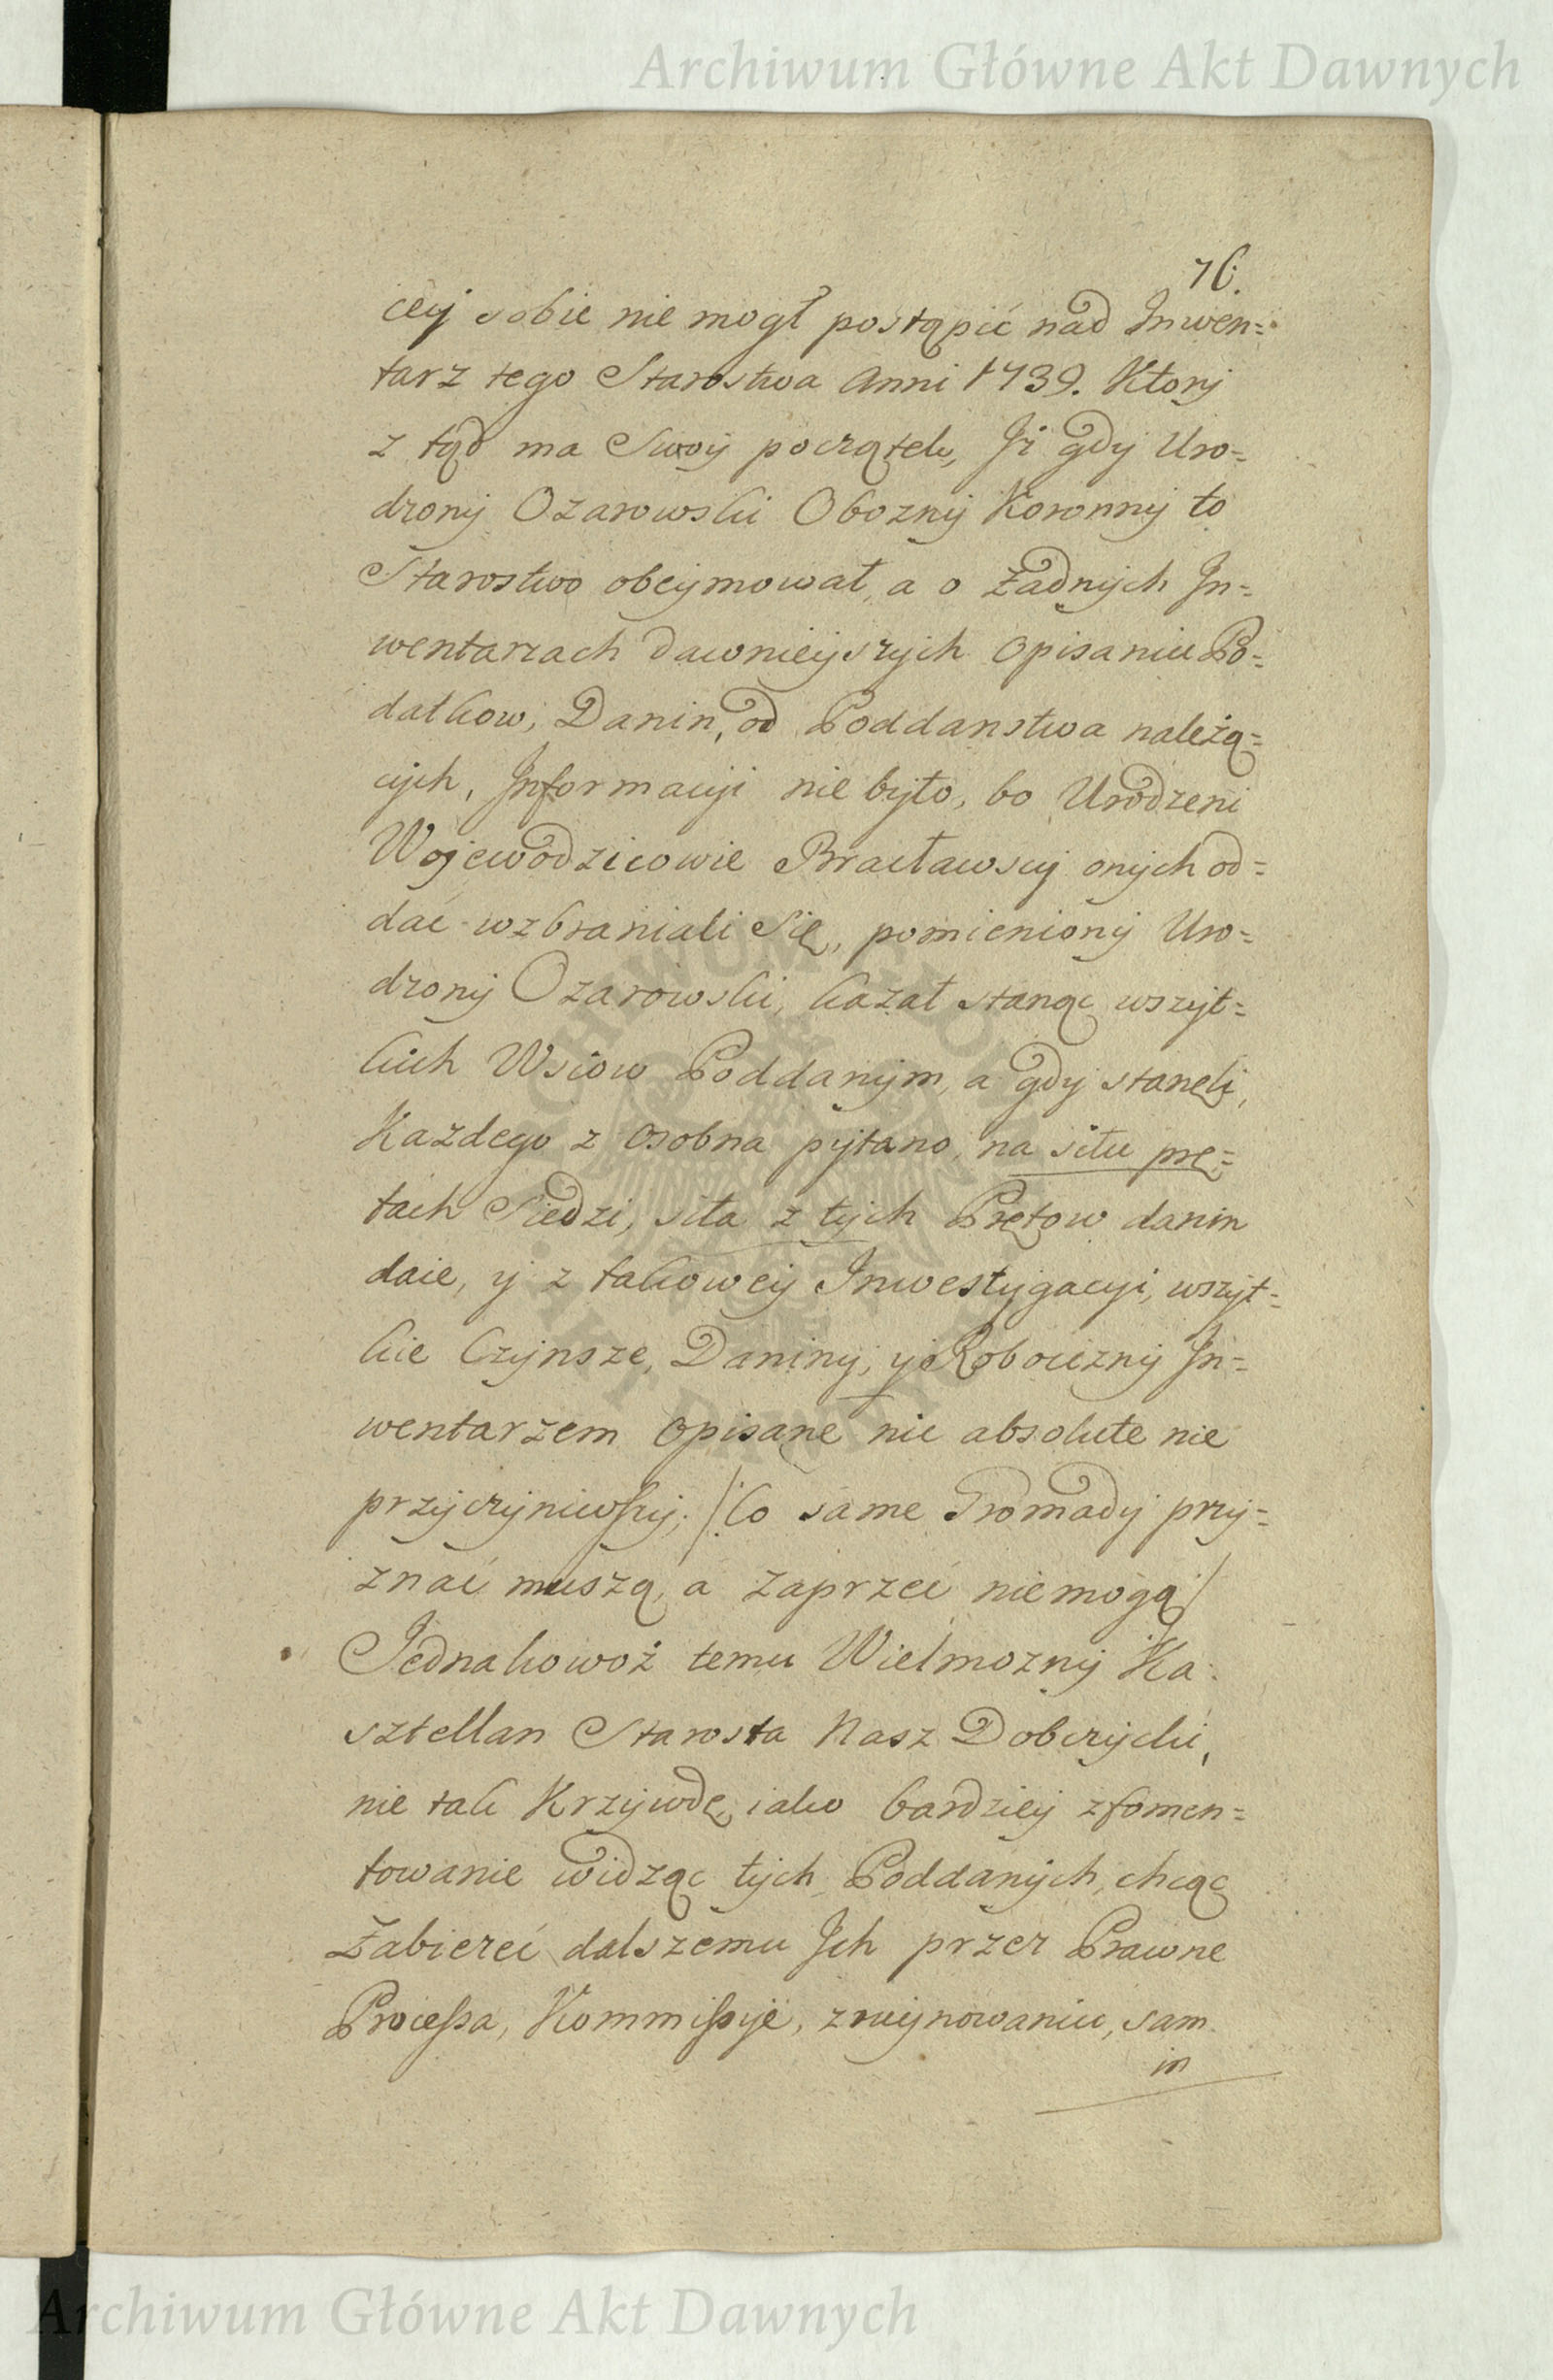 Archiwum Główne Akt Dawnych
76.
cey sobie nie mogł postąpić nad Inwen=
tarz tego Starostwa Anni 1739. Ktory
z tąd ma Swoy początek, Iż gdy Uro=
dzony Ożarowski Obozny Koronny to
Starostwo obeymował, a o żadnych In=
wentarzach dawnieyszych opisaniu Po=
datkow, Danin, od Poddanstwa należą=
cych, Informacyi nie było, bo Urodzeni
Wojewodzicowie Bracławscy onych od=
dać wzbraniali Się, pomieniony Uro=
dzony Ozarowski, kazał stanąc wszyt=
kich Wsiow Poddanym, a gdy staneli,
Kazdego z osobna pytano, na siłu prę=
tach Siedzi, siła z tych Prętow danin
daie, y z takowey Inwestygacyi, wszyt=
kie Czynsze, Daniny, y Robocizny In=
wentarzem opisane nic absolute nie
przyczyniwszy; /: Co same Gromady przy=
znać muszą, a zaprzeć niemogą :/
Jednakowoż temu Wielmozny Ka=
sztellan Starosta Nasz Dobczycki,
nie tak Krzywdę, iako bardziey zfomen=
towanie widząc tych Poddanych, chcąc
Zabierzeć dalszemu Ich przez Prawne
Processa, Kommissye, zruynowaniu, sam
in
Archiwum Główne Akt Dawnych